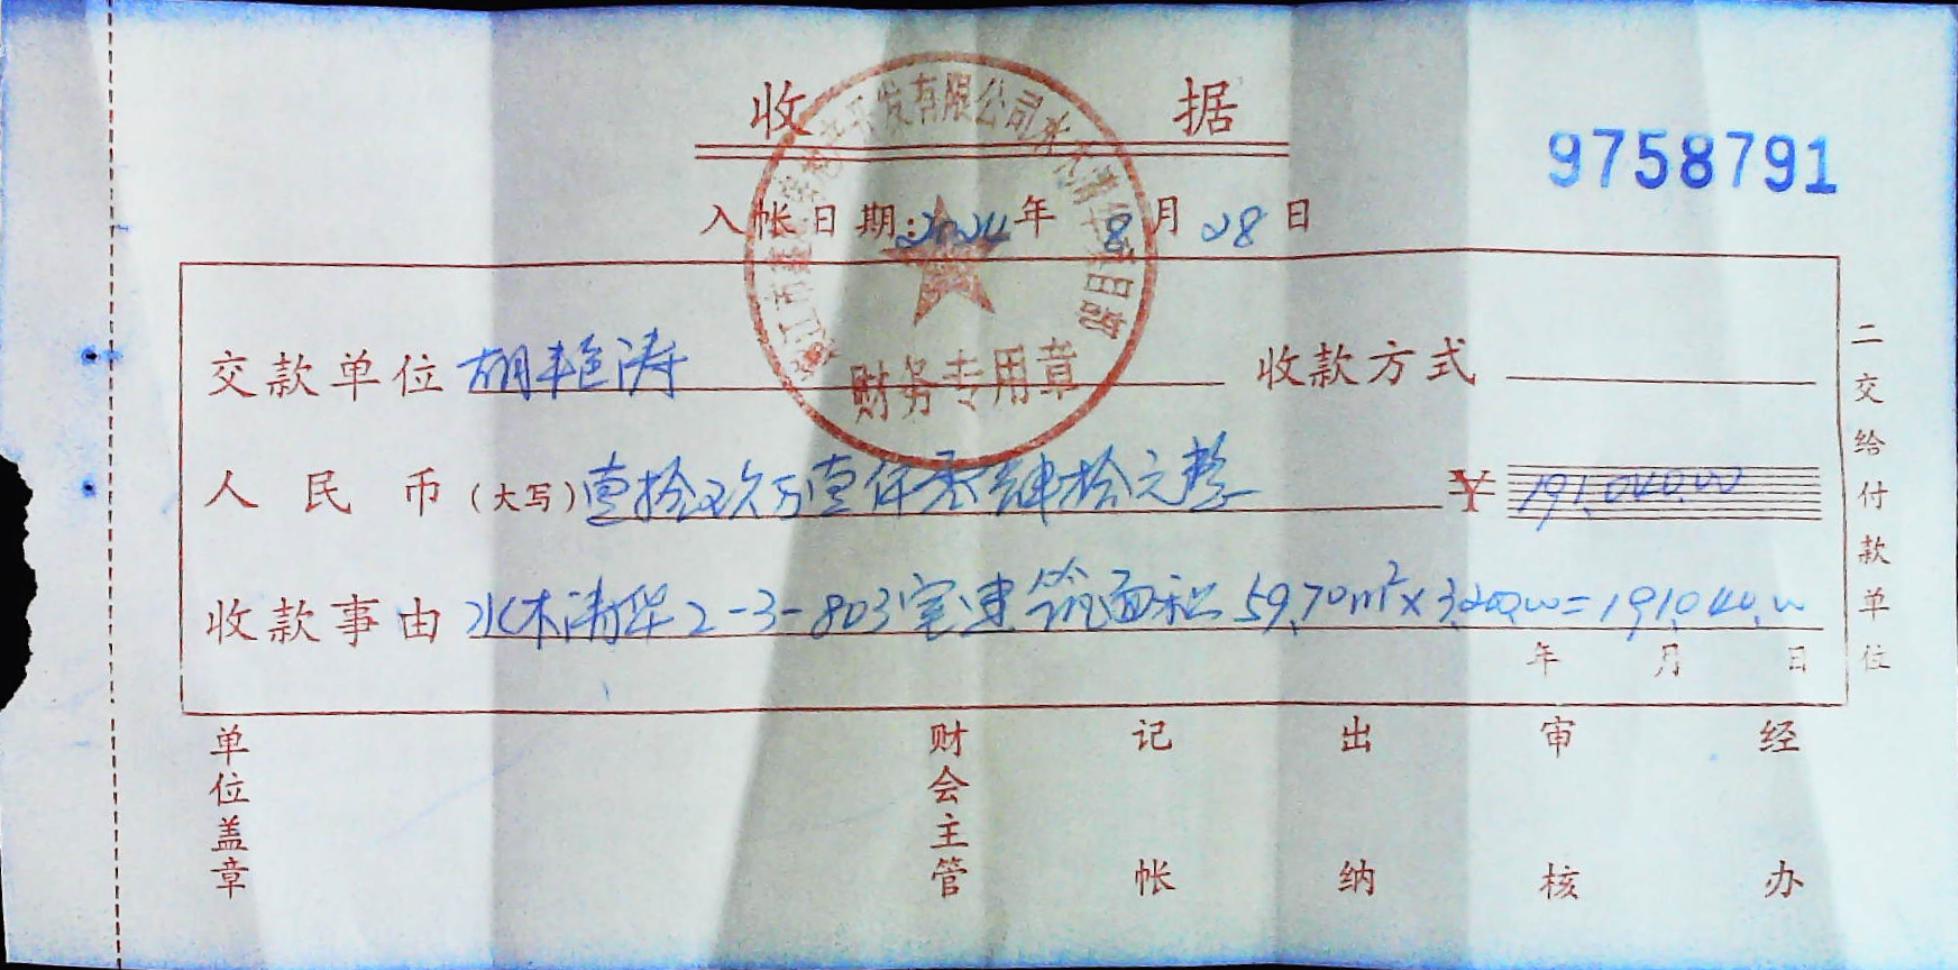 收据
9758791
入帐日期：2024年8月28日
交款单位 胡艳涛 收款方式
人民币（大写）壹拾玖万壹仟零肆拾元整 ¥ 191,040.00
收款事由 水木清华2-3-803室建筑面积59.70m²×3,200.00=191,040.00
年 月 日
二交给付款单位
单位盖章 财会主管 记帐 出纳 审核 经办
开发有限公司水木清华项目部
财务专用章